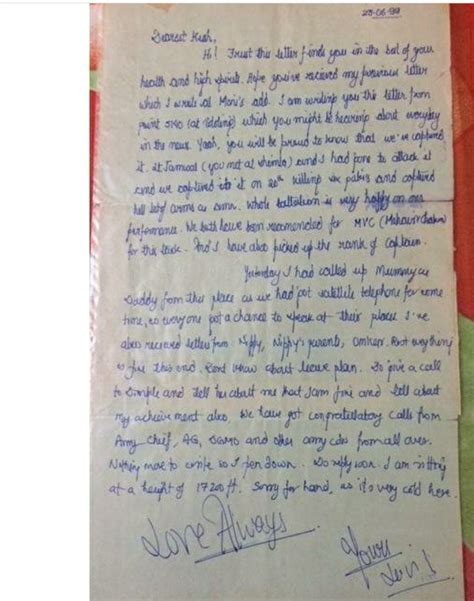 23-06-99
Dearest Kush,
Hi! Trust this letter finds you in the best of your
health and high spirits. Hope you've recieved my previous letter
which I wrote at Moni's add. I am writing you this letter from
point 5140 (at Tololing) which you might be hearing about everyday
in the news. Yeah, you will be proud to know that we've captured
it. Lt Jamwal (you met at Shimla) and I had gone to attack it
and we captured it on 20th killing six pakis and captured
hell lot of arms as ammn. Whole battalion is very happy on our
performance. We both have been recommended for MVC (Mahavir Chakra)
for this task. And I have also picked up the rank of Captain.
Yesterday I had called up Mummy as
Daddy from this place as we had got satellite telephone for some
time, so everyone got a chance to speak at their place. I've
also received letter from Nippy, Nippy's parents, Rest everything
is fine this end. Dont know about leave plan. Do give a call
to Dimple and tell her about me that I am fine and tell about
my achievement also. We have got congratulatory calls from
Army Chief, AG, DGMO and other army cdrs from all over.
Nothing more to write so I pen down. Do reply soon. I am sitting
at a height of 17200 ft. Sorry for hand, as it's very cold here.
Love Always
Yours